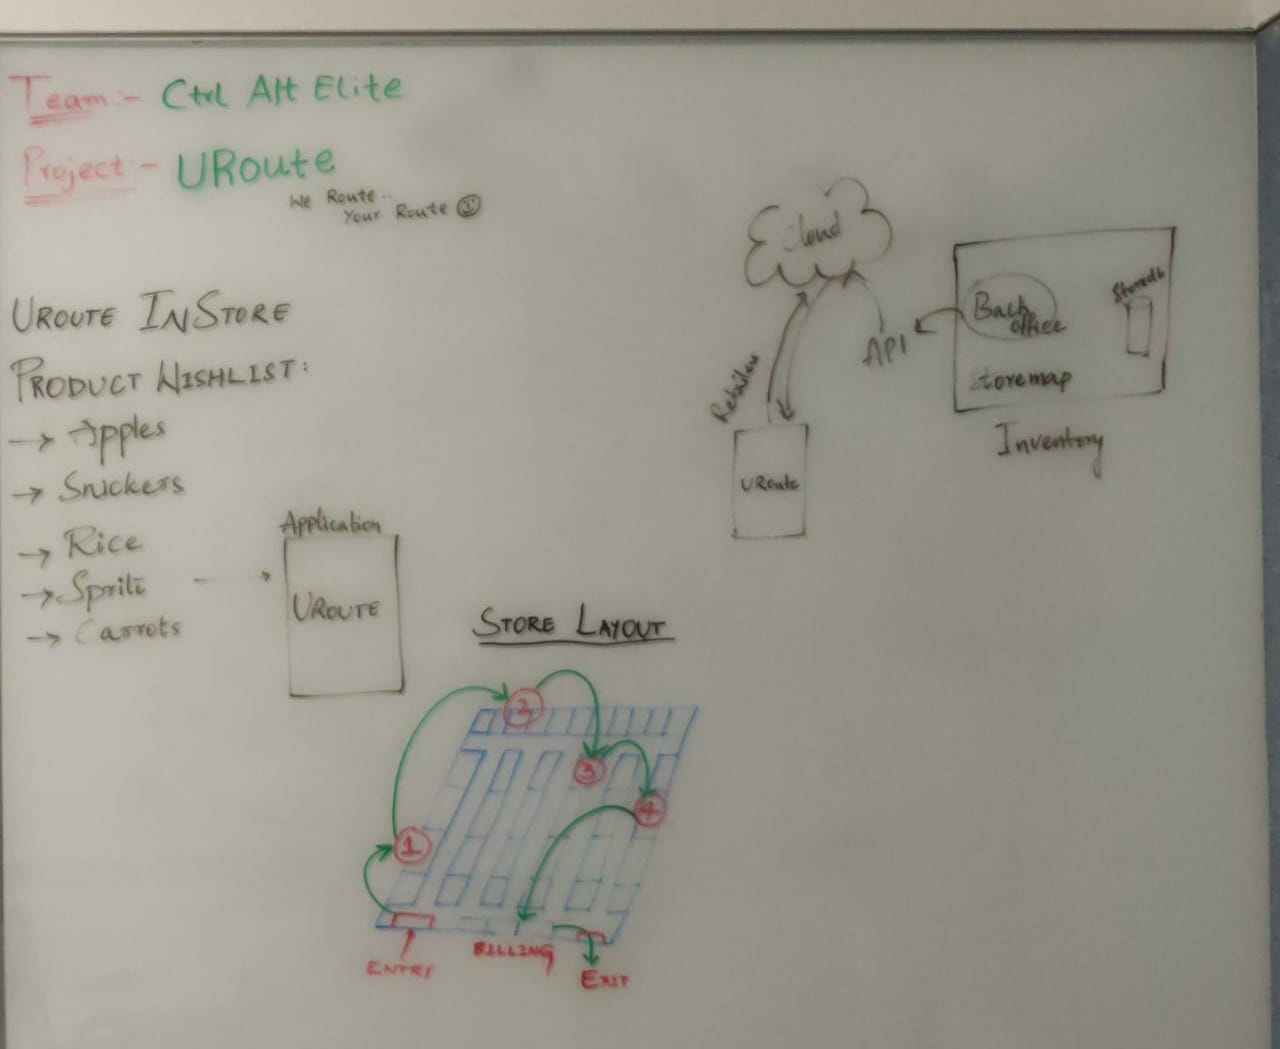 Team:- Ctrl Alt Elite
Project:- URoute
We Route..
Your Route
UROUTE INSTORE
PRODUCT WISHLIST:
→ Apples
→ Snickers
→ Rice
→ Sprite
→ Carrots
Application
UROUTE
Cloud
Retailer
API
URoute
Back
office
Storedb
Storemap
Inventory
STORE LAYOUT
1
2
3
4
ENTRY
BILLING
EXIT